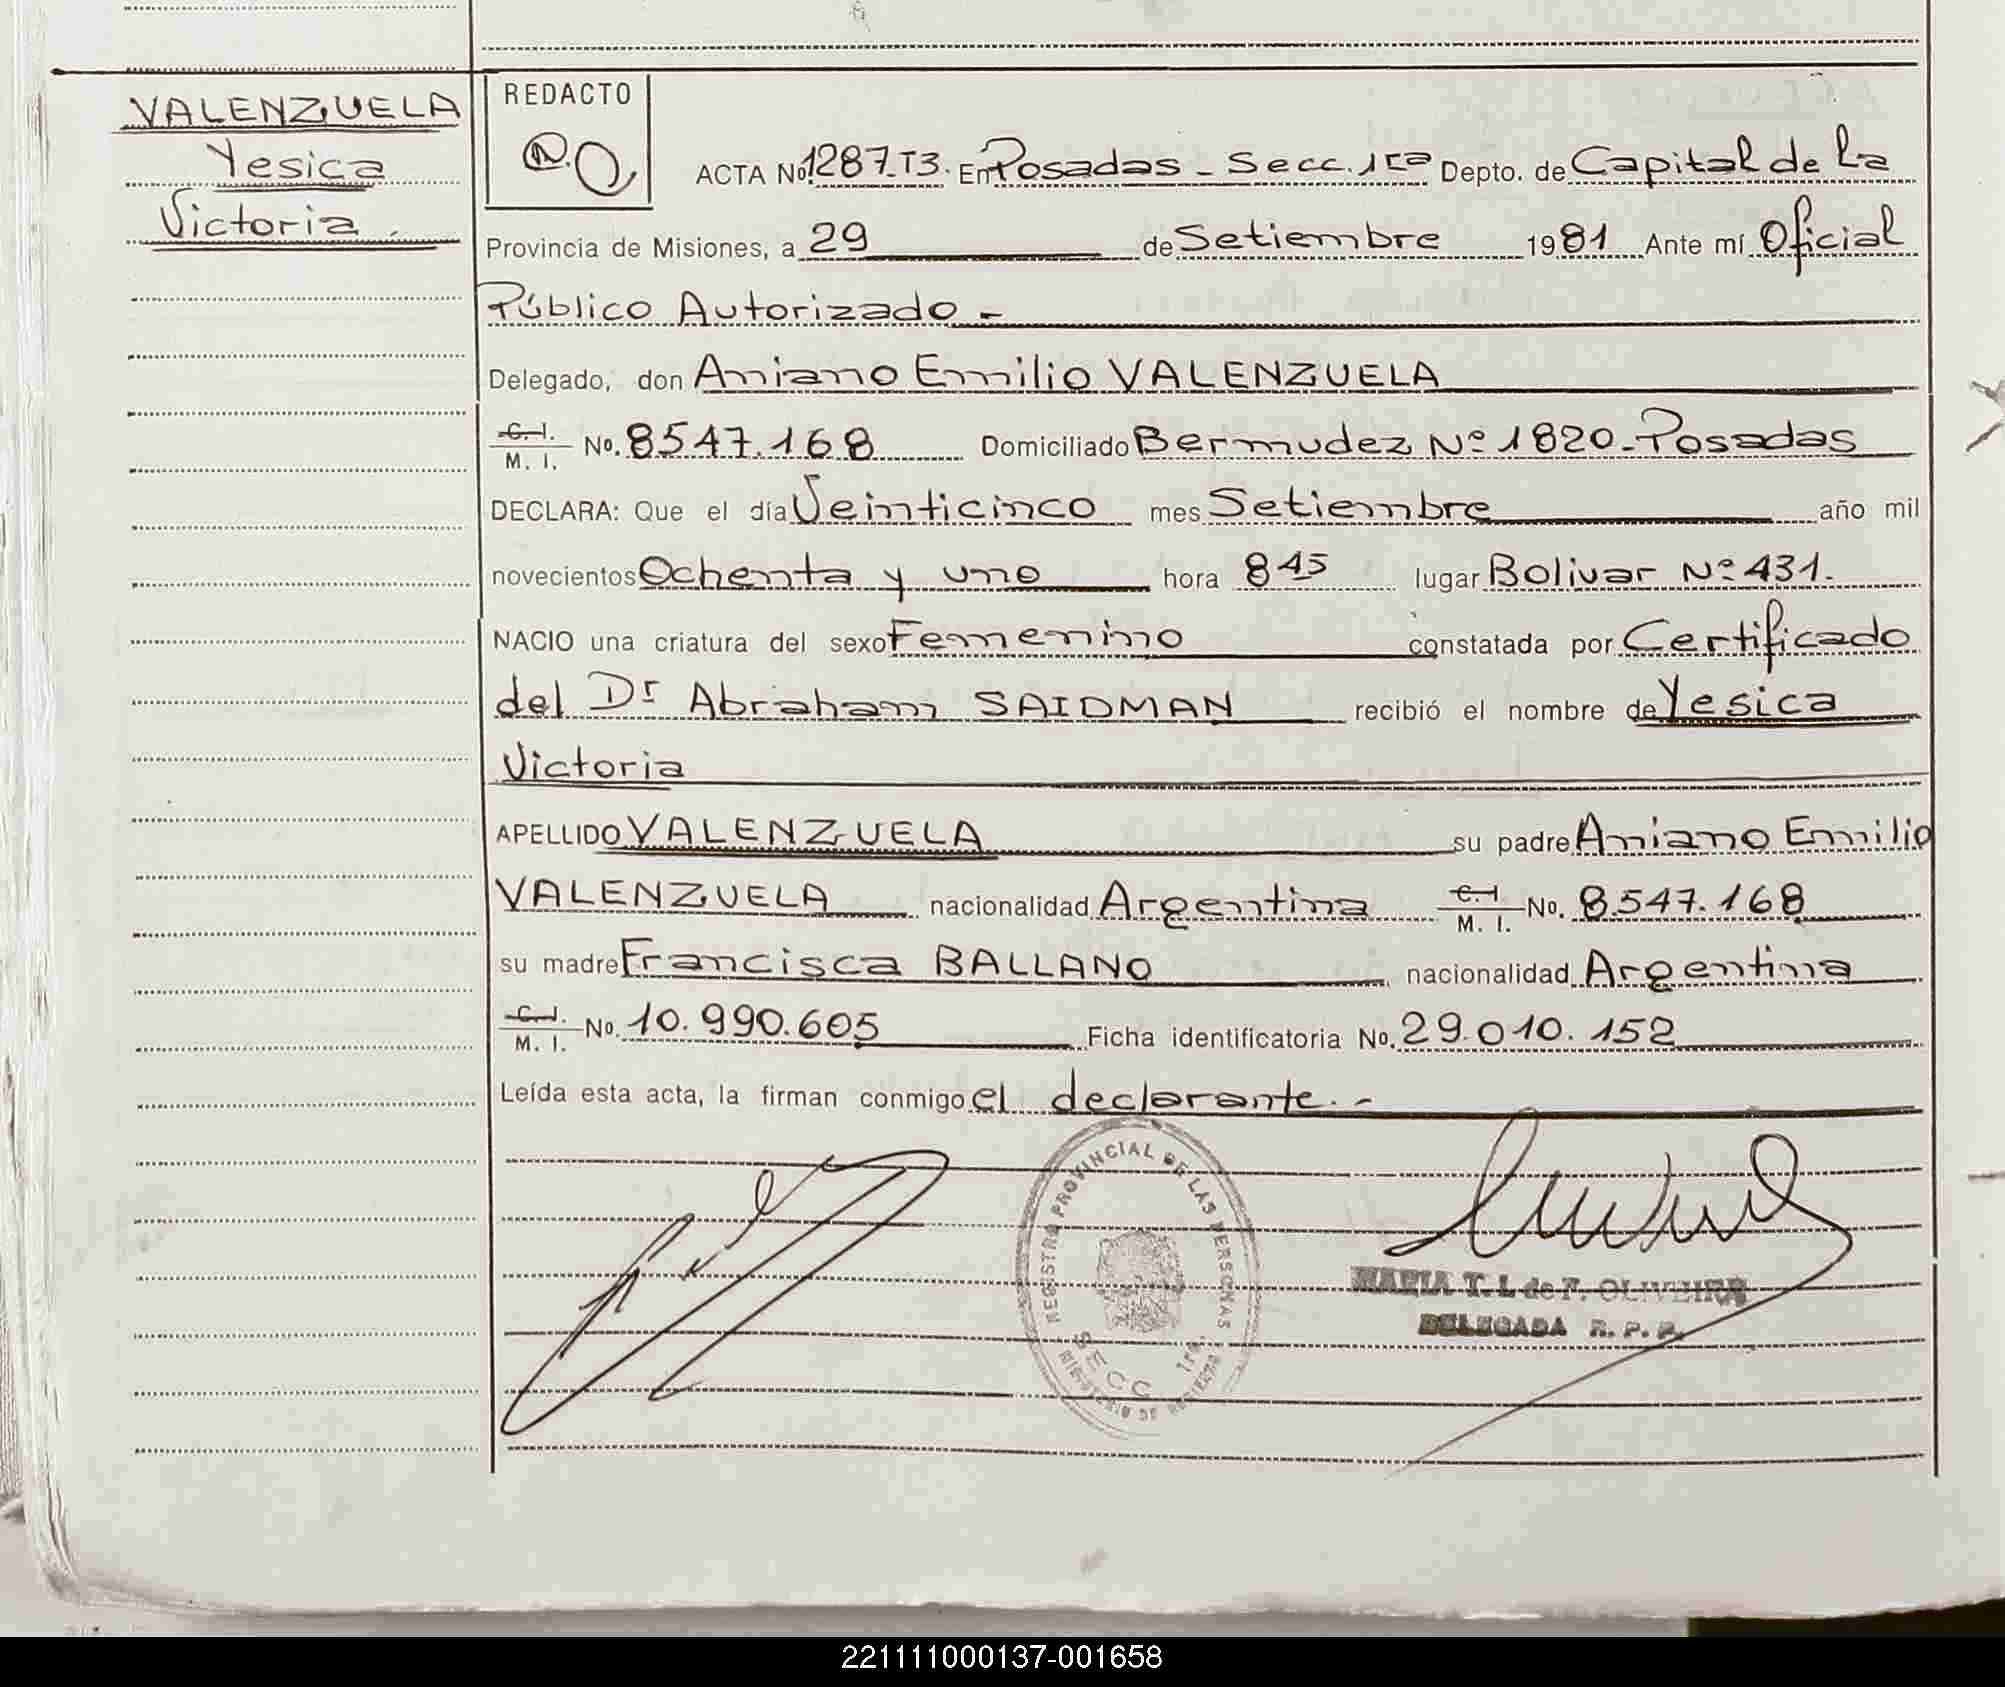 VALENZUELA
Yesica
Victoria.
REDACTO
ACTA No. 1287-T3. En Posadas - Secc. 1ra Depto. de Capital de la
Provincia de Misiones, a 29 de Setiembre 1981 Ante mí Oficial
Público Autorizado -
Delegado, don Aniano Emilio VALENZUELA
C. I.
M. I. No. 8547.168 Domiciliado Bermudez Nº 1820-Posadas
DECLARA: Que el día Veinticinco mes Setiembre año mil
novecientos Ochenta y uno hora 8 45 lugar Bolivar Nº 431.
NACIO una criatura del sexo Femenino constatada por Certificado
del Dr Abraham SAIDMAN recibió el nombre de Yesica
Victoria
APELLIDO VALENZUELA su padre Aniano Emilio
VALENZUELA nacionalidad Argentina C. I.
M. I. No. 8.547.168
su madre Francisca BALLANO nacionalidad Argentina
C. I.
M. I. No. 10.990.605 Ficha identificatoria No. 29.010.152
Leída esta acta, la firman conmigo el declarante. -
REGISTRO PROVINCIAL DE LAS PERSONAS
SECC 1ra.
MINISTERIO DE GOBIERNO
MARIA T. L. de F. OLIVEIRA
DELEGADA R. P. P.
221111000137-001658